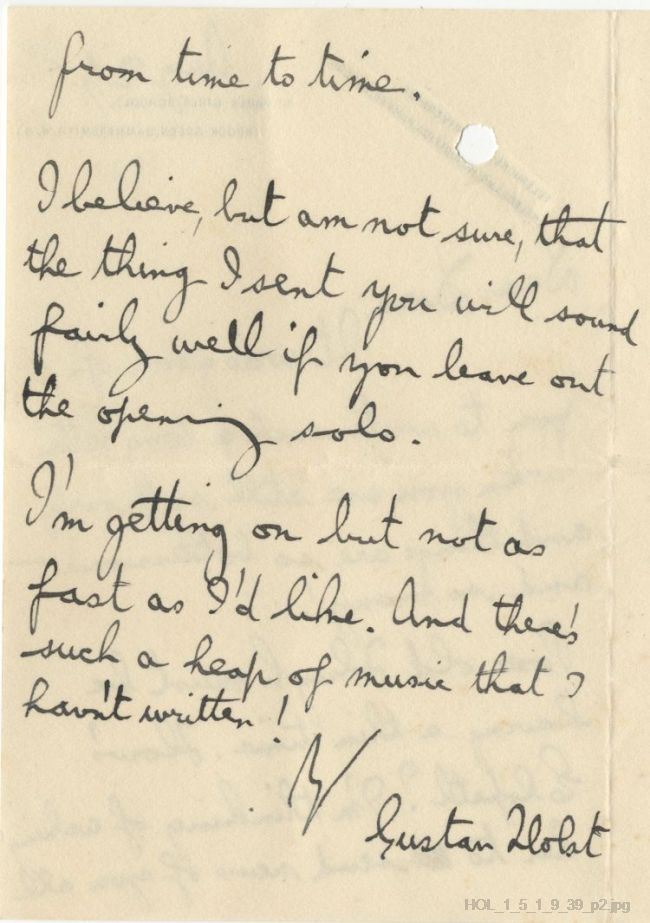 from time to time.
I believe, but am not sure, that
the thing I sent you will sound
fairly well if you leave out
the opening solo.
I'm getting on but not as
fast as I'd like. And there's
such a heap of music that I
havn't written!
Gustav Holst
HOL_1_5_1_9_39_p2.jpg